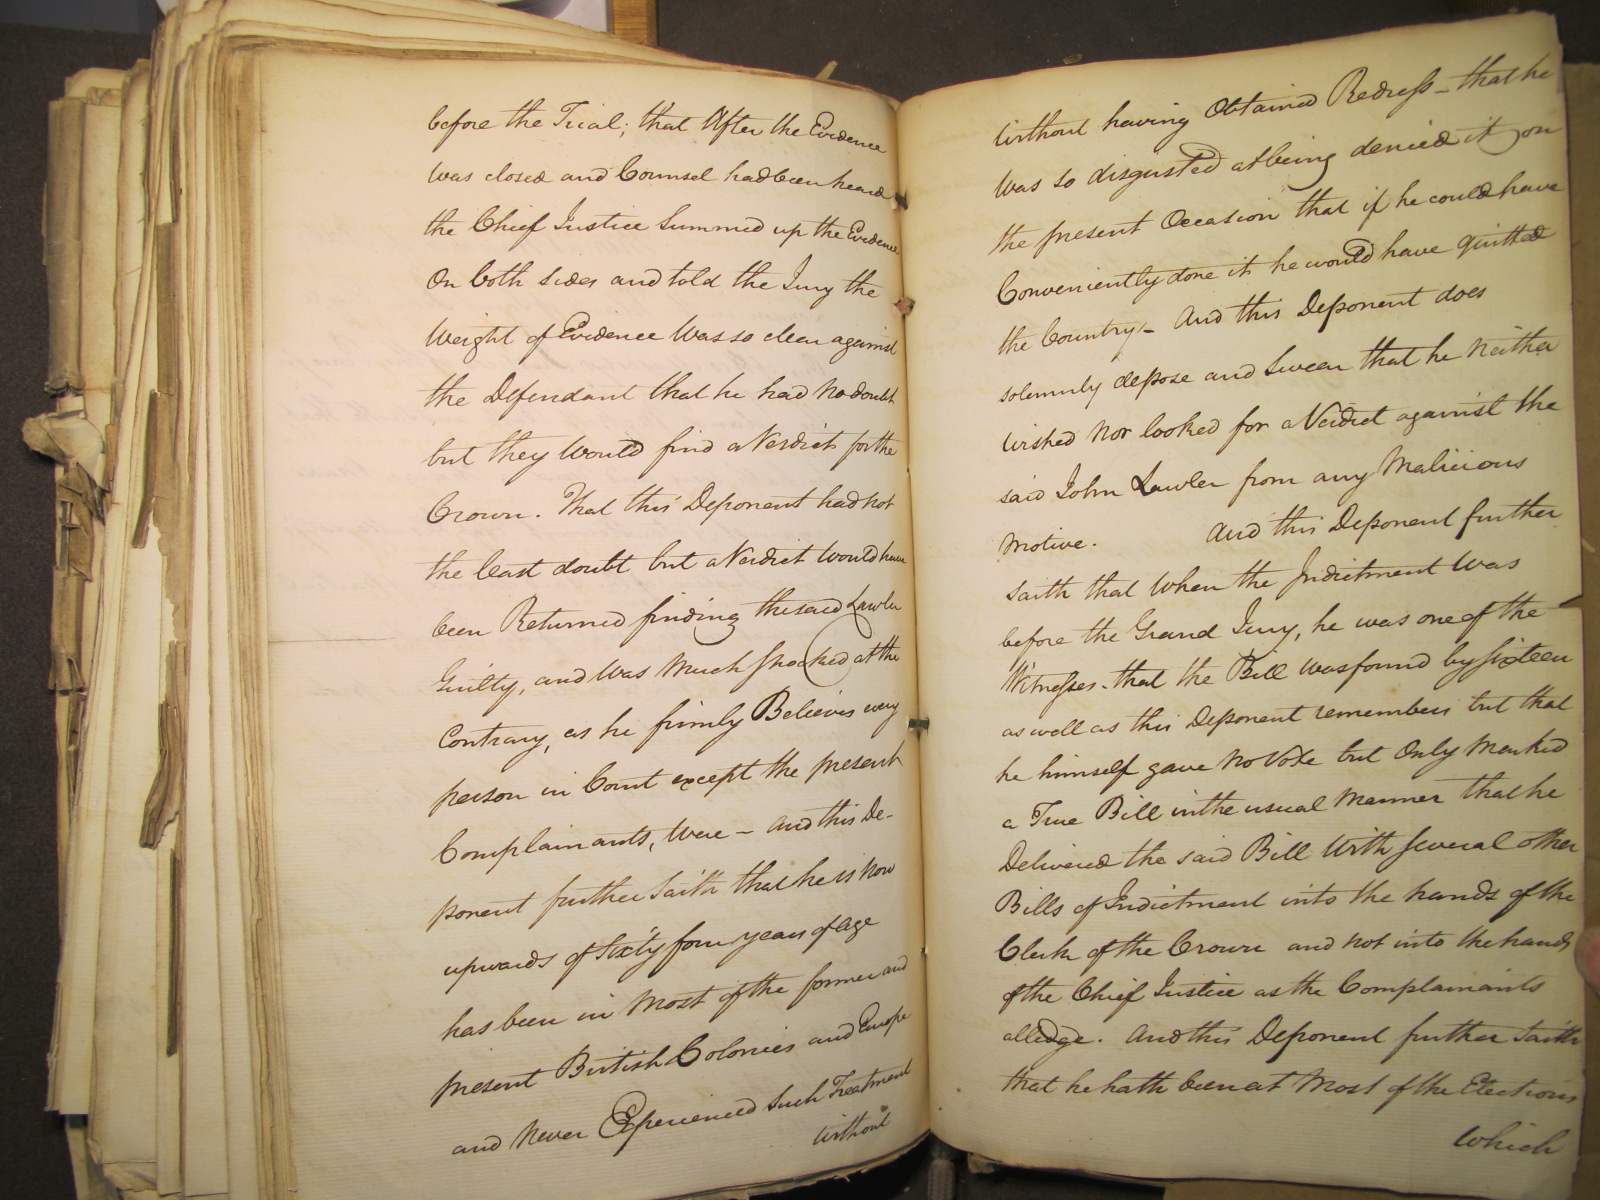 before the Trial; that After the Evidence
was closed and Counsel had been heard
the Chief Justice Summed up the Evidence
On both sides and told the Jury the
Weight of Evidence Was so clear against
the Defendant that he had no doubt
but they would find a Verdict for the
Crown. That this Deponent had not
the least doubt but a Verdict would have
been Returned finding the said Lawler
Guilty, and was Much Shocked at the
Contrary, as he firmly Believes every
person in Court except the present
Complainants, Were – And this De-
ponent further Saith that he is Now
upwards of Sixty four years of Age
has been in Most of the former and
present British Colonies and Europe
and Never Experienced Such Treatment
without
Without having Obtained Redress – that he
Was so disgusted at being denied it on
the present Occasion that if he could have
Conveniently done it he would have quitted
the Country – And this Deponent does
solemnly depose and Swear that he Neither
Wished Nor looked for a Verdict against the
said John Lawler from any Malicious
Motive. And this Deponent further
saith that When the Indictment Was
before the Grand Jury, he was one of the
Witnesses. that the Bill was found by Sixteen
as well as this Deponent remembers but that
he himself gave No Vote but Only Marked
a True Bill in the usual Manner that he
Delivered the said Bill With Several other
Bills of Indictment into the hands of the
Clerk of the Crown and not into the hands
of the Chief Justice as the Complainants
alledge. And this Deponent further Saith
that he hath been at Most of the Elections
Which